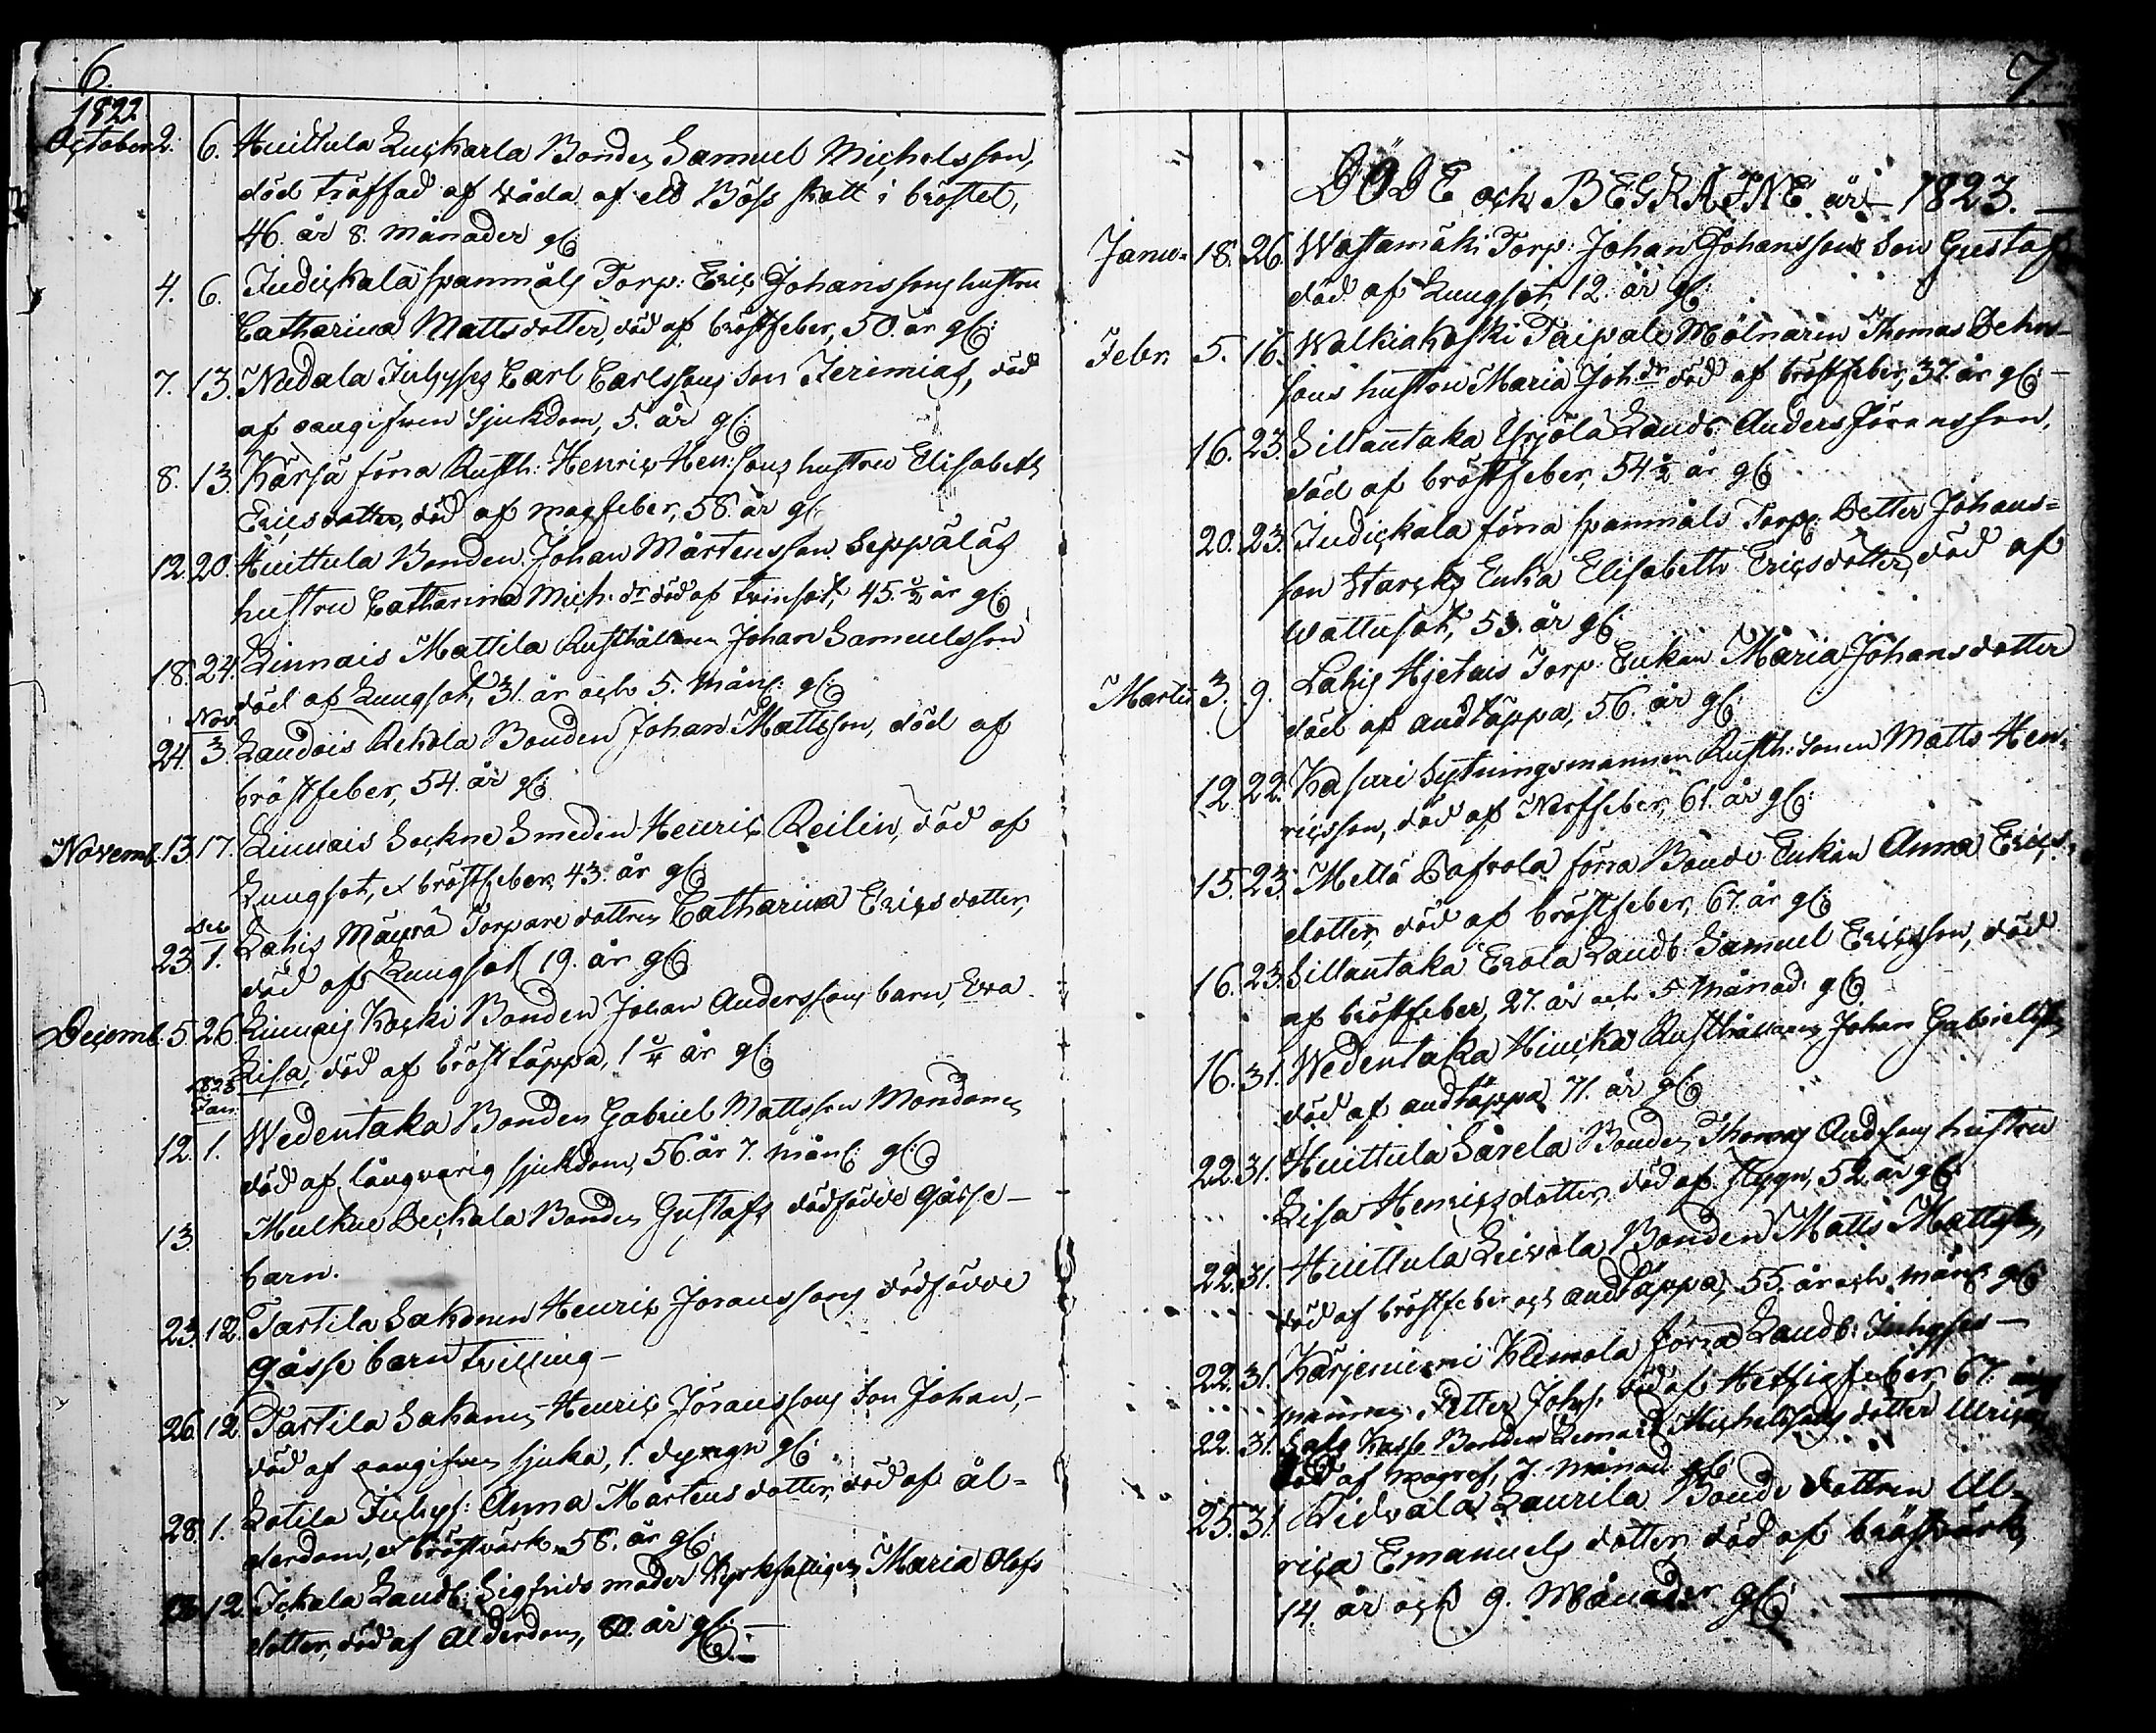 6.
1822.
October 2. 6. Huittula Kuckarla Bonden Samuel Michelsson,
död träffad af våda af ett Böss skott i bröstet,
46. år 8. månader gl:
4. 6. Judickala spanmåls Torp: Eric Johanssons hustru
Catharina Mattsdotter, död af bröstfeber, 50. år gl:
7. 13. Nudala Inhyses Carl Carlssons son Jerimias, död
af oangifven sjukdom, 5. år gl:
8. 13. Kärsä förra Rusth: Henric Hen:sons hustru Elisabeth
Ericsdotter, död af magfeber, 58. år gl:
12. 20. Huittula Bonden Johan Mårtensson Seppäläs
hustru Catharina Mich: dr död af tvinsot, 45. 1/2 år gl:
18. 24. Linnais Mattila Rusthållaren Johan Samuelsson
död af Lungsot, 31. år och 5. mån: gl:
Nov.
24. 3. Laudois Rekola Bonden Johan Mattsson, död af
bröstfeber, 54. år gl:
Novemb. 13. 17. Linnais Sockne Smeden Henric Reilin, död af
Lungsot, et bröstfeber, 43. år gl:
Dec.
23. 1. Lahis Mäyrä Torpare dottren Catharina Ericsdotter,
död af Lungsot, 19. år gl:
Decemb. 5. 26. Linnais Koski Bonden Johan Anderssons barn, Eva
Lisa, död af brösttäppa, 1 1/4 år gl:
1823
Jan:
12. 1. Wedentaka Bonden Gabriel Mattsson
död af långvarig sjukdom, 56. år 7. mån: gl:
13. Mulkue Beckala Bonden Gustafs dödfödde Gåsse-
barn.
23. 12. Tartila Henric Joranssons dödfödde
Gåsse barn tvilling-
26. 12. Tartila Henric Jöranssons son Johan,-
död af oangifven sjuka, 1. dygn gl:
28. 1. Kotila Inhys: Anna Mårtensdotter, död af ål-
derdom, et bröstvärk, 58. år gl:
12. Jckala Landb: Sigfrids moder Kyrkfattigen Maria Olofs
dotter, död af Alderdom, år gl:-
7.
DÖDE och BEGRAFNE år 1823.
Janu- 18. 26. Wastamäki Torp: Johan Johanssons Son Gustaf
död af Lungsot, 12. år gl:
Febr. 5. 16. Walkiakoski Taipale Mölnaren Thomas
sons hustru Maria Joh:dr död af bröstfeber, 37. år gl:-
16. 23. Sillantaka Yrjölä Landb. Anders Jöransson,
död af bröstfeber, 54 1/2 år gl:
20. 23. Judickala förra spanmåls Torp: Petter Johans=
son Starcks Enka Elisabeth Ericsdotter, död af
wattusot, 53. år gl:
Martii 3. 9. Lahis Hjetais Torp: Enkan Maria Johansdotter
död af andtäppa, 56. år gl:
12. 22. Kasuri Sytningsmannen Rusth: Sonen Matts Hen-
ricsson, död af Nerffeber, 61. år gl:
15. 23. Mellä förra Bonde Enkan Anna Erics
dotter, död af bröstfeber, 67. år gl:
16. 23. Sillantaka Erola Landb. Samuel Ericsson, död
af bröstfeber, 27. år och 5 Månad: gl:
16. 31. Wedentaka Hincka Rusthållaren Johan Gabrielss:
död af andtäppa, 71. år gl:
22. 31. Huittula Särela Bonden Thomas Andssons hustru
Lisa Henricsdotter, död af stygn, 52. år gl:
22. 31. Huittula Leivola Bonden Matts Mattsson,
död af bröstfeber och andtäppa, 55. år och mån: gl:
22. 31. Kärjenniemi Klemola förra Landb: Inhyses-
mannen Petter Johs: död af Hetsigfeber, 67. år
22. 31. Kasse Bonden Michelssons dotter Ulrica,
död af magref, 7. månad gl:
25. 31. Tidvala Laurila Bonde dottren Ul-
rica Emanuels dotter, död af bröstvärk,
14. år och 9. Månader gl: